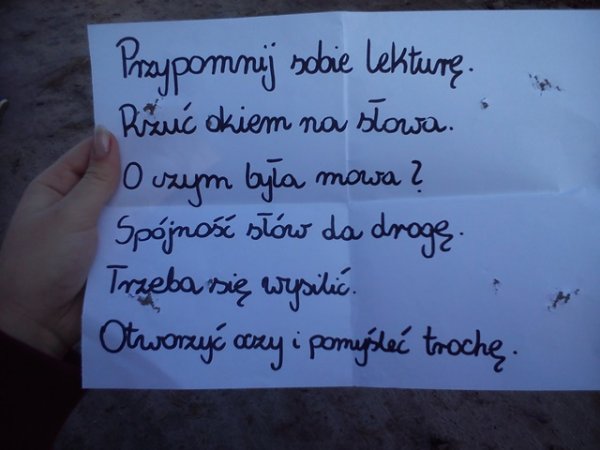 Przypomnij sobie lekturę.
Rzuć okiem na słowa.
O czym była mowa?
Spójność słów da drogę.
Trzeba się wysilić.
Otworzyć oczy i pomyśleć trochę.